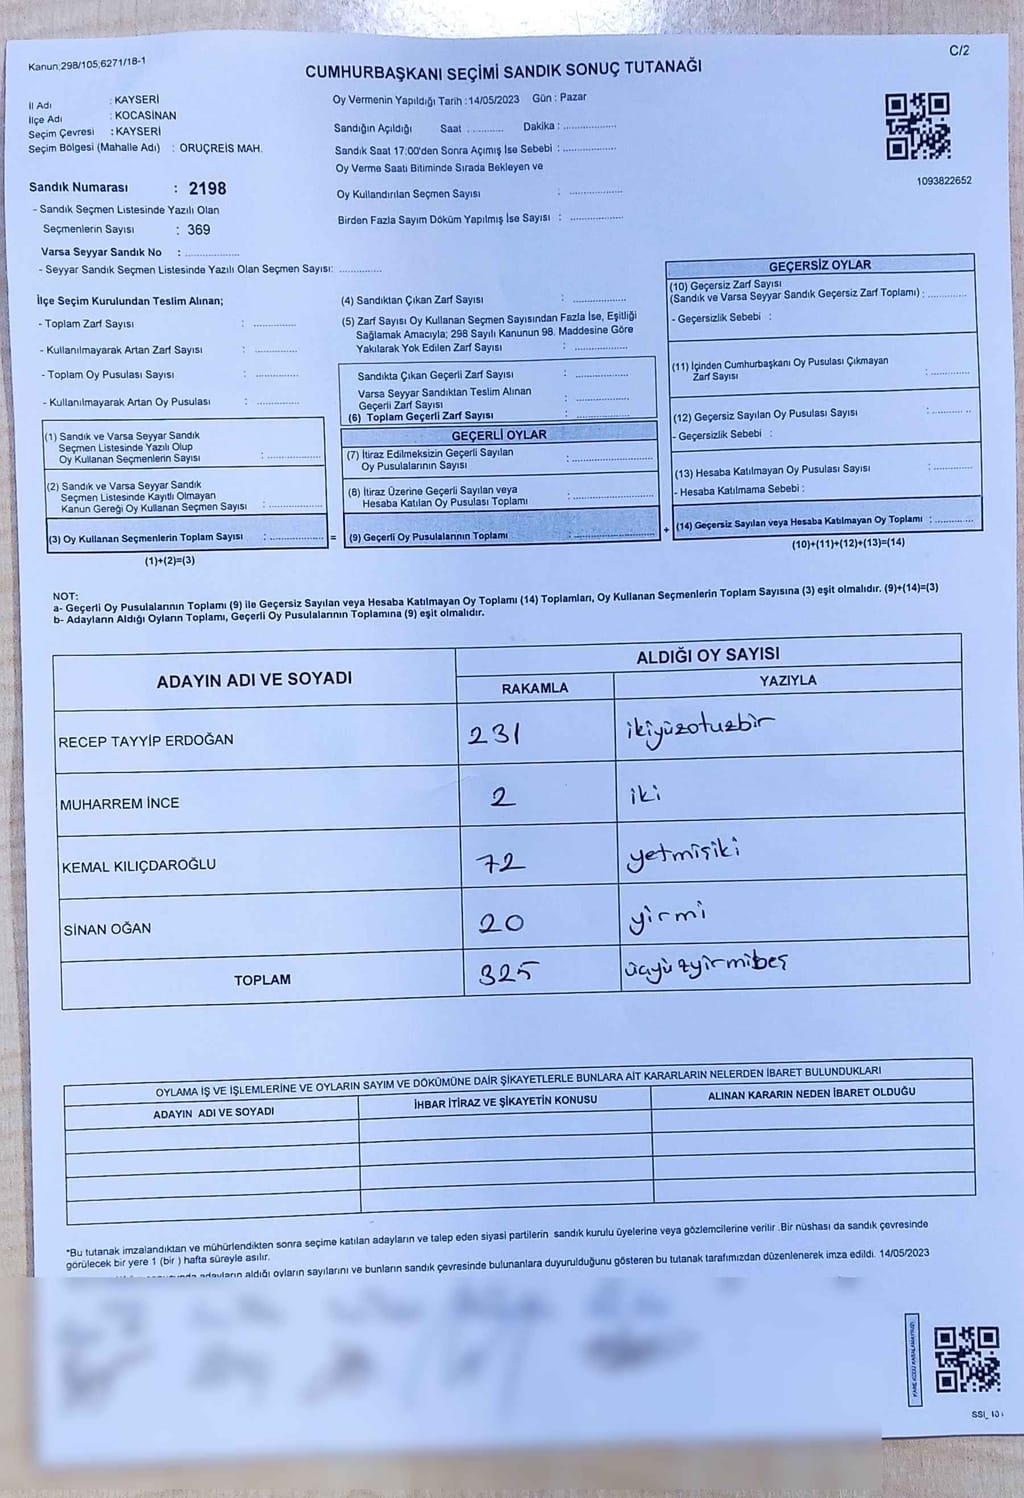 Kanun;298/105;6271/18-1
C/2
CUMHURBAŞKANI SEÇİMİ SANDIK SONUÇ TUTANAĞI
İl Adı : KAYSERİ
İlçe Adı : KOCASİNAN
Seçim Çevresi : KAYSERİ
Seçim Bölgesi (Mahalle Adı) : ORUÇREİS MAH.
Sandık Numarası : 2198
- Sandık Seçmen Listesinde Yazılı Olan
Seçmenlerin Sayısı : 369
Varsa Seyyar Sandık No : ..................
- Seyyar Sandık Seçmen Listesinde Yazılı Olan Seçmen Sayısı: ..............
Oy Vermenin Yapıldığı Tarih :14/05/2023 Gün : Pazar
Sandığın Açıldığı Saat ............ Dakika : ..................
Sandık Saat 17:00'den Sonra Açımış İse Sebebi : ..................
Oy Verme Saati Bitiminde Sırada Bekleyen ve
Oy Kullandırılan Seçmen Sayısı : ..................
Birden Fazla Sayım Döküm Yapılmış İse Sayısı : ..................
1093822652
İlçe Seçim Kurulundan Teslim Alınan;
- Toplam Zarf Sayısı : ..............
- Kullanılmayarak Artan Zarf Sayısı : ..............
- Toplam Oy Pusulası Sayısı : ..............
- Kullanılmayarak Artan Oy Pusulası : ..............
(1) Sandık ve Varsa Seyyar Sandık
Seçmen Listesinde Yazılı Olup
Oy Kullanan Seçmenlerin Sayısı : ..................
(2) Sandık ve Varsa Seyyar Sandık
Seçmen Listesinde Kayıtlı Olmayan
Kanun Gereği Oy Kullanan Seçmen Sayısı : ..................
(3) Oy Kullanan Seçmenlerin Toplam Sayısı : .................. =
(1)+(2)=(3)
(4) Sandıktan Çıkan Zarf Sayısı : ..................
(5) Zarf Sayısı Oy Kullanan Seçmen Sayısından Fazla İse, Eşitliği
Sağlamak Amacıyla; 298 Sayılı Kanunun 98. Maddesine Göre
Yakılarak Yok Edilen Zarf Sayısı : ..................
Sandıkta Çıkan Geçerli Zarf Sayısı : ..................
Varsa Seyyar Sandıktan Teslim Alınan
Geçerli Zarf Sayısı : ..................
(6) Toplam Geçerli Zarf Sayısı : ..................
GEÇERLİ OYLAR
(7) İtiraz Edilmeksizin Geçerli Sayılan
Oy Pusulalarının Sayısı : ..................
(8) İtiraz Üzerine Geçerli Sayılan veya
Hesaba Katılan Oy Pusulası Toplamı : ..................
(9) Geçerli Oy Pusulalarının Toplamı : .................. +
GEÇERSİZ OYLAR
(10) Geçersiz Zarf Sayısı
(Sandık ve Varsa Seyyar Sandık Geçersiz Zarf Toplamı) : ............
- Geçersizlik Sebebi :
(11) İçinden Cumhurbaşkanı Oy Pusulası Çıkmayan
Zarf Sayısı : ............
(12) Geçersiz Sayılan Oy Pusulası Sayısı : ............
- Geçersizlik Sebebi :
(13) Hesaba Katılmayan Oy Pusulası Sayısı : ............
- Hesaba Katılmama Sebebi :
(14) Geçersiz Sayılan veya Hesaba Katılmayan Oy Toplamı : ............
(10)+(11)+(12)+(13)=(14)
NOT:
a- Geçerli Oy Pusulalarının Toplamı (9) ile Geçersiz Sayılan veya Hesaba Katılmayan Oy Toplamı (14) Toplamları, Oy Kullanan Seçmenlerin Toplam Sayısına (3) eşit olmalıdır. (9)+(14)=(3)
b- Adayların Aldığı Oyların Toplamı, Geçerli Oy Pusulalarının Toplamına (9) eşit olmalıdır.
ADAYIN ADI VE SOYADI ALDIĞI OY SAYISI
RAKAMLA YAZIYLA
RECEP TAYYİP ERDOĞAN 231 ikiyüzotuzbir
MUHARREM İNCE 2 iki
KEMAL KILIÇDAROĞLU 72 yetmişiki
SİNAN OĞAN 20 yirmi
TOPLAM 325 üçyüzyirmibeş
OYLAMA İŞ VE İŞLEMLERİNE VE OYLARIN SAYIM VE DÖKÜMÜNE DAİR ŞİKAYETLERLE BUNLARA AİT KARARLARIN NELERDEN İBARET BULUNDUKLARI
ADAYIN ADI VE SOYADI İHBAR İTİRAZ VE ŞİKAYETİN KONUSU ALINAN KARARIN NEDEN İBARET OLDUĞU
*Bu tutanak imzalandıktan ve mühürlendikten sonra seçime katılan adayların ve talep eden siyasi partilerin sandık kurulu üyelerine veya gözlemcilerine verilir .Bir nüshası da sandık çevresinde
görülecek bir yere 1 (bir ) hafta süreyle asılır.
adayların aldığı oyların sayılarını ve bunların sandık çevresinde bulunanlara duyurulduğunu gösteren bu tutanak tarafımızdan düzenlenerek imza edildi. 14/05/2023
KARE KODU KARALAMAYINIZ!